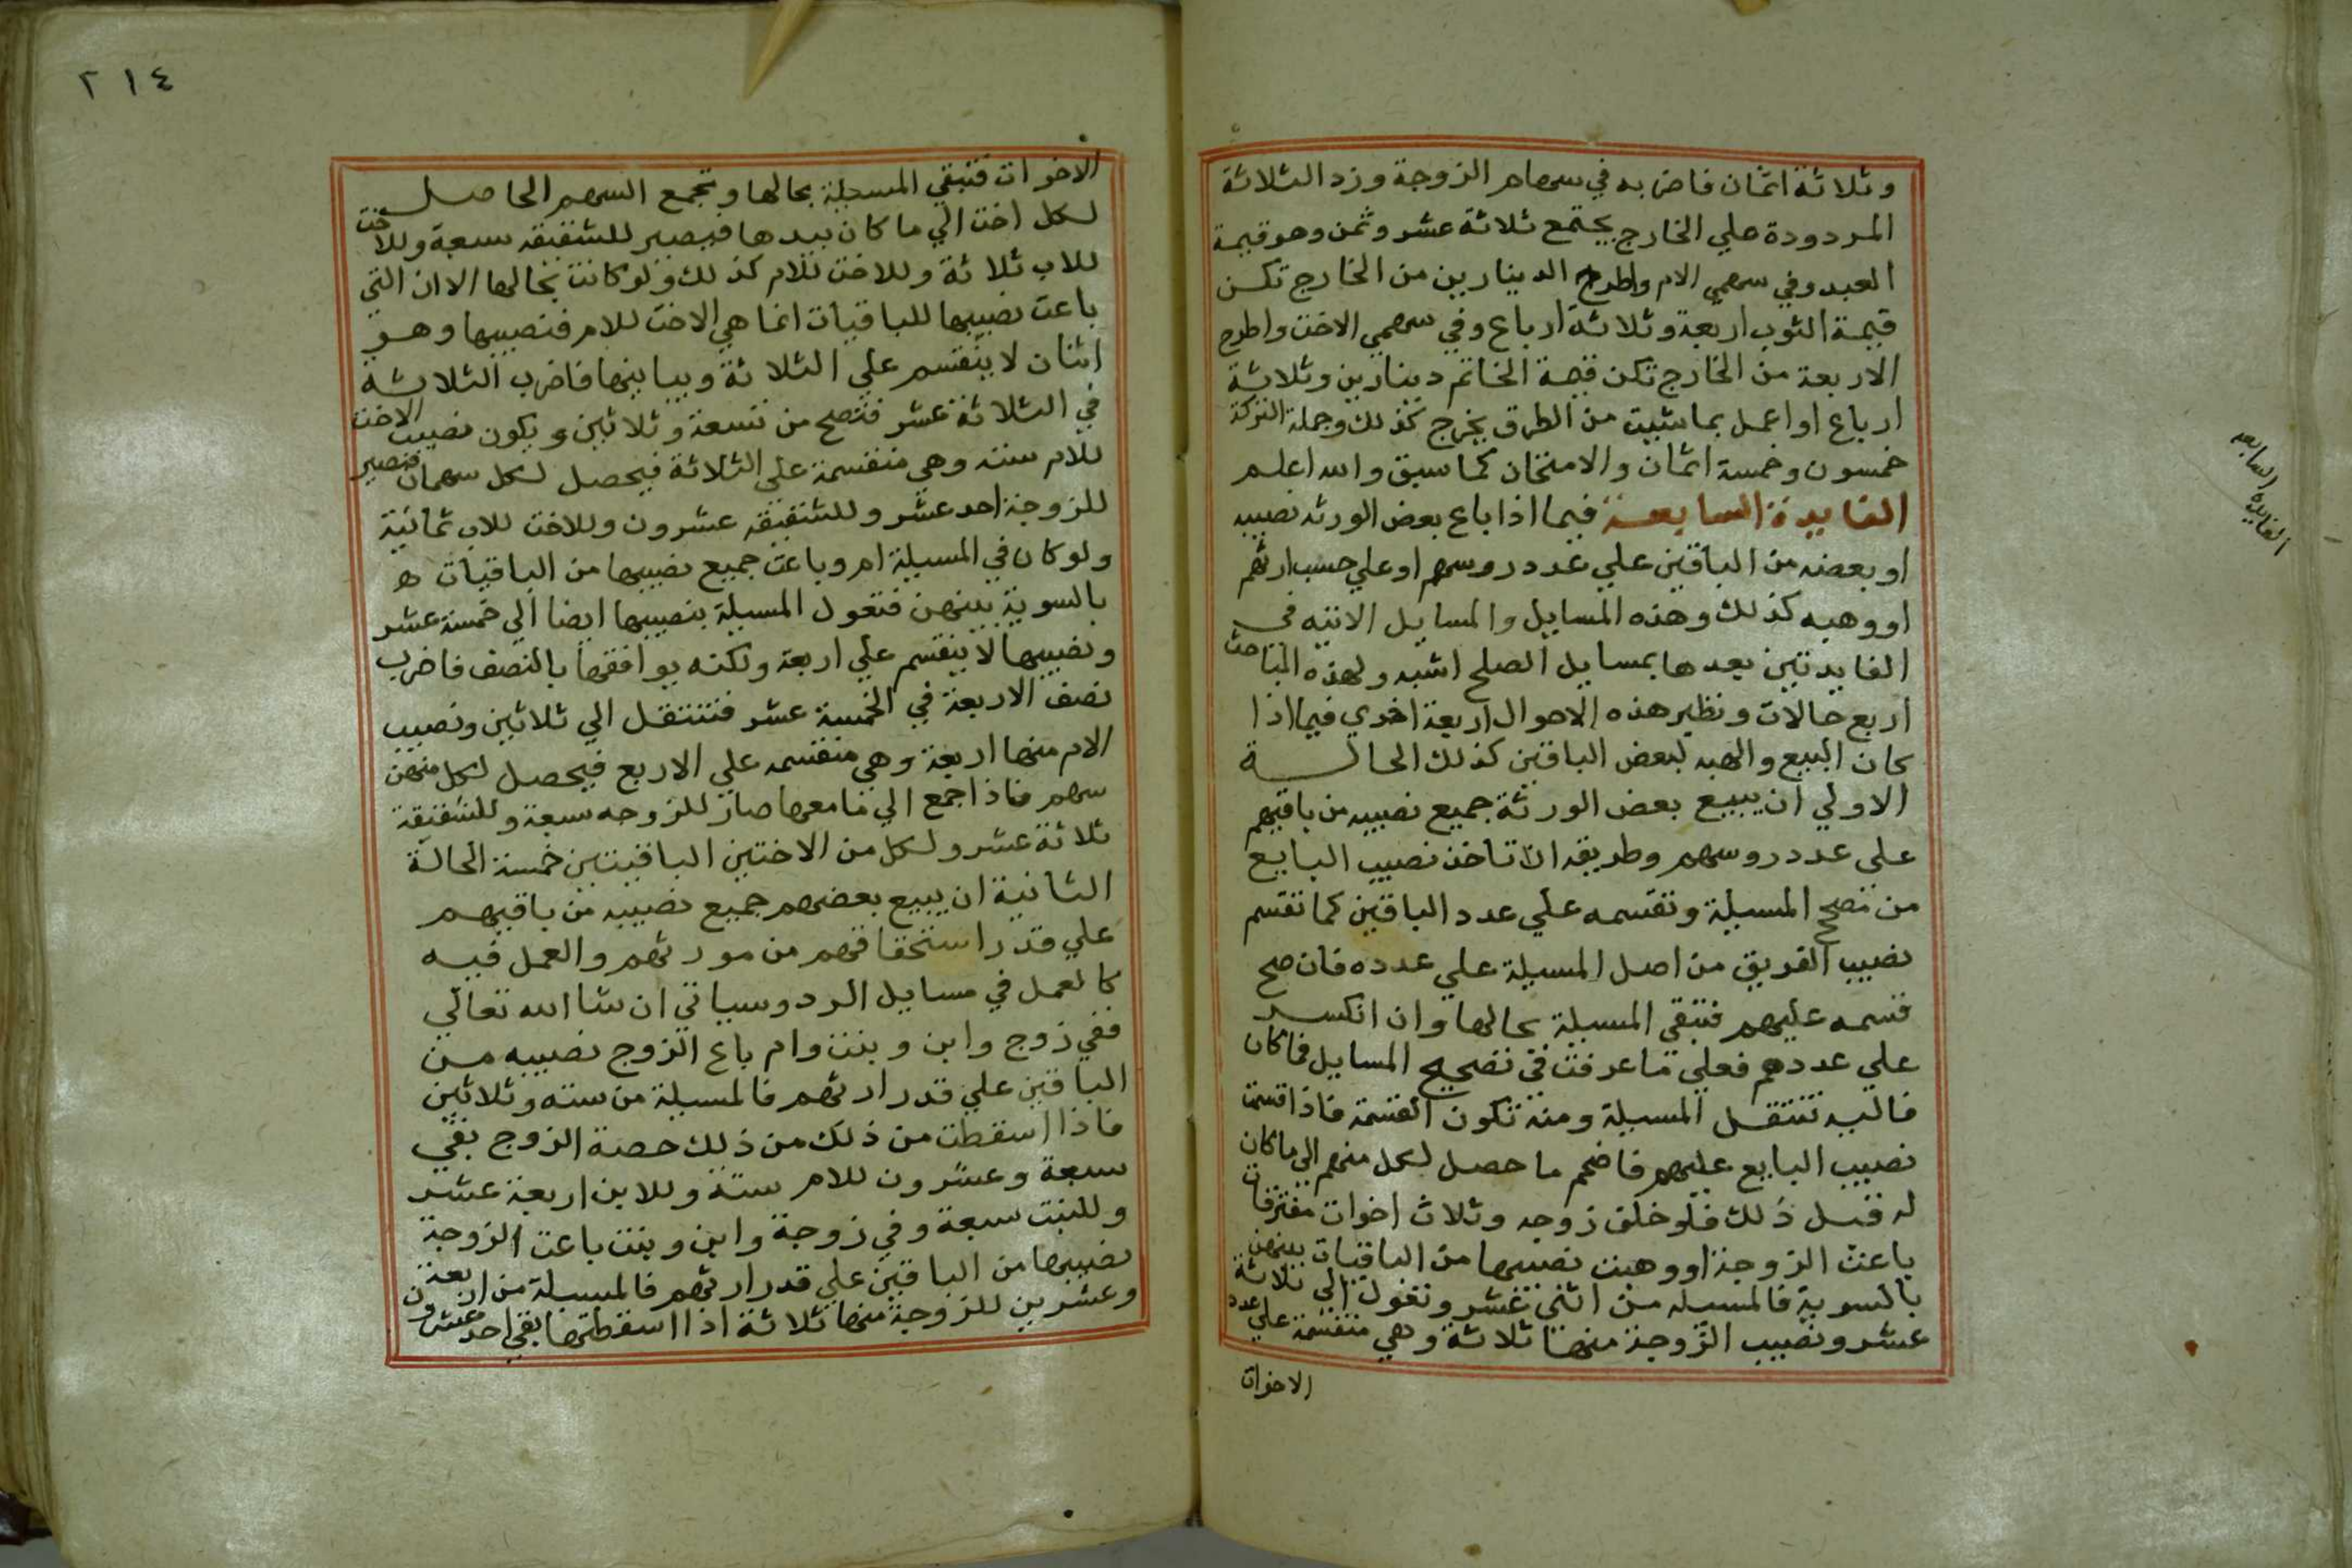 وثلاثة اثمان فاضربه في سهام الزوجة وزد الثلاثة
المردودة علي الخارج يجتمع ثلاثة عشر وثمن وهو قيمة
العبد وفي سهمي الام واطرح الدينارين من الخارج تكن
قيمة الثوب اربعة وثلاثة ارباع وفي سهمي الاخت واطرح
الاربعة من الخارج تكن قيمة الخاتم دينارين وثلاثة
ارباع او اعمل بما شيت من الطرق يخرج كذلك وجملة التركة
خمسون وخمسة اثمان والامتحان كما سبق والله اعلم
الفايدة السابعة فيما اذا باع بعض الورثه نصيبه
او بعضه من الباقين علي عدد روسهم او علي حسب ارثهم
او وهبه كذلك وهذه المسايل والمسايل الاتيه في
الفايدتين بعدها بمسايل الصلح اشبه ولهذه المباحث
اربع حالات ونظير هذه الاحوال اربعة اخري فيما اذا
كان البيع والهبه لبعض الباقين كذلك الحالة
الاولي ان يبيع بعض الورثة جميع نصيبه من باقيهم
علي عدد روسهم وطريقه ان تاخذ نصيب البايع
من تصحح المسيلة وتقسمه علي عدد الباقين كما تقسم
نصيب الفريق من اصل المسيلة علي عدده فان صح
قسمه عليهم فتبقي المسيلة بحالها وان انكسر
علي عددهم فعلي ما عرفت في تصحيح المسايل فما كان
فاليه تنتقل المسيلة ومنه تكون القسمة فاذا قسمت
نصيب البايع عليهم فاضمم ما حصل لكل منهم الي ما كان
له قبل ذلك فلو خلف زوجه وثلاث اخوات مفترقات
باعت الزوجة او وهبت نصيبها من الباقيات بينهن
بالسوية فالمسيله من اثني عشر وتعول الي ثلاثة
عشر ونصيب الزوجة منها ثلاثة وهي منقسمة علي عدد
الاخوات
الفايدة السابعه
٢١٤
الاخوات فتبقي المسيلة بحالها وتجمع السهم الحاصل
لكل اخت الي ما كان بيدها فيصير للشقيقه سبعة وللاخت
للاب ثلاثة وللاخت للام كذلك ولو كانت بحالها الا ان التي
باعت نصيبها للباقيات انما هي الاخت للام فنصيبها وهو
اثنان لا ينقسم علي الثلاثة ويباينها فاضرب الثلاثة
في الثلاثة عشر فتصح من تسعة وثلاثين ويكون نصيب الاخت
للام سته وهي منقسمة علي الثلاثة فيحصل لكل سهمان فيصير
للزوجة احد عشر وللشقيقه عشرون وللاخت للاب ثمانية
ولو كان في المسيلة ام وباعت جميع نصيبها من الباقيات ه
بالسوية بينهن فتعول المسيلة بنصيبها ايضا الي خمسة عشر
ونصيبها لا ينقسم علي اربعة ولكنه يوافقها بالنصف فاضرب
نصف الاربعة في الخمسة عشر فتنتقل الي ثلاثين ونصيب
الام منها اربعة وهي منقسمه علي الاربع فيحصل لكل منهن
سهم فاذا جمع الي ما معها صار للزوجه سبعة وللشقيقة
ثلاثة عشر ولكل من الاختين الباقيتين خمسة الحالة
الثانية ان يبيع بعضهم جميع نصيبه من باقيهم
علي قدر استحقاقهم من مورثهم والعمل فيه
كالعمل في مسايل الرد وسياتي ان شا الله تعالي
ففي زوج وابن وبنت وام باع الزوج نصيبه من
الباقين علي قدر ارثهم فالمسيلة من سته وثلاثين
فاذا اسقطت من ذلك من ذلك حصة الزوج بقي
سبعة وعشرون للام ستة وللابن اربعة عشر
وللبنت سبعة وفي زوجة وابن وبنت باعت الزوجة
نصيبها من الباقين علي قدر ارثهم فالمسيلة من اربعة
وعشرين للزوجة منها ثلاثة اذا اسقطتها بقي احد وعشرون